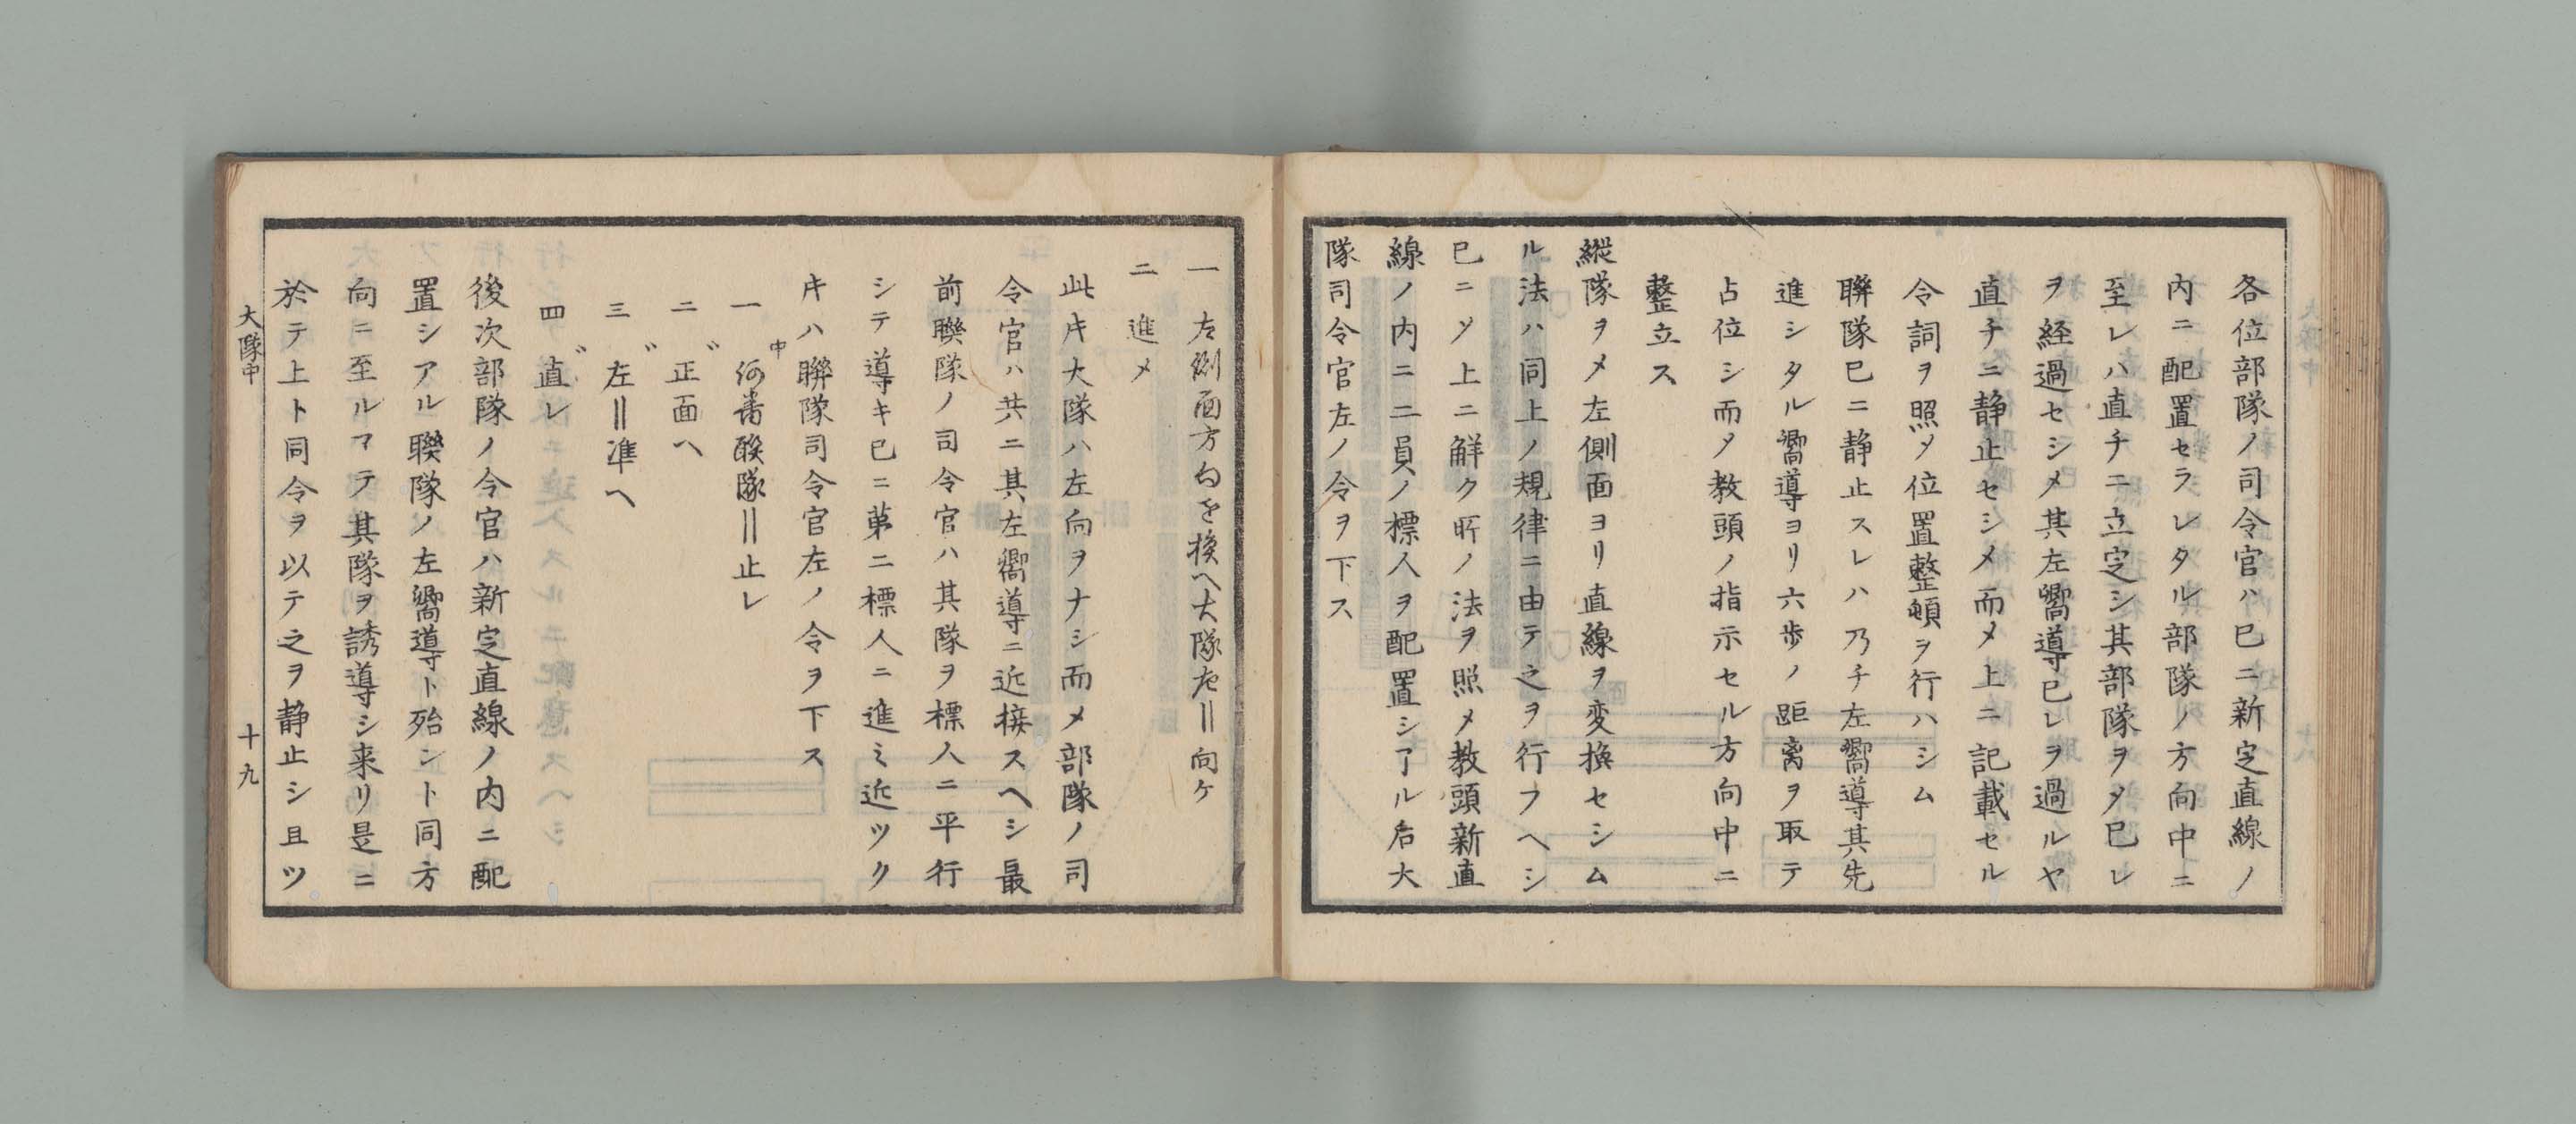 各位部隊ノ司令官ハ已ニ新定直線ノ
内ニ配置セラレタル部隊ノ方向中ニ
至レハ直チニ立定シ其部隊ヲメ已レ
ヲ経過セシメ其左嚮導已レヲ過ルヤ
直チニ静止セシメ而メ上ニ記載セル
令詞ヲ照メ位置整頓ヲ行ハシム
聯隊已ニ静止スレハ乃チ左嚮導其先
進シタル嚮導ヨリ六歩ノ距离ヲ取テ
占位シ而メ教頭ノ指示セル方向中ニ
整立ス
縦隊ヲメ左側面ヨリ直線ヲ変換セシム
ル法ハ同上ノ規律ニ由テ之ヲ行フヘシ
已ニメ上ニ鮮ク所ノ法ヲ照メ教頭新直
線ノ内ニ二員ノ標人ヲ配置シアル后大
隊司令官左ノ令ヲ下ス
一 左側面方向を換へ大隊左=向ケ
二 進メ
此キ大隊ハ左向ヲナシ而メ部隊ノ司
令官ハ共ニ其左嚮導ニ近接スヘシ最
前聯隊ノ司令官ハ其隊ヲ標人ニ平行
シテ導キ已ニ第二標人ニ進ミ近ツク
キハ聯隊司令官左ノ令ヲ下ス
一 中 何番聯隊=止レ
二 〃 正面ヘ
三 〃 左=準ヘ
四 〃 直レ
後次部隊ノ令官ハ新定直線ノ内ニ配
置シアル聯隊ノ左嚮導ト殆ント同方
向ニ至ルマテ其隊ヲ誘導シ来リ是ニ
於テ上ト同令ヲ以テ之ヲ静止シ且ツ
大隊中 十九